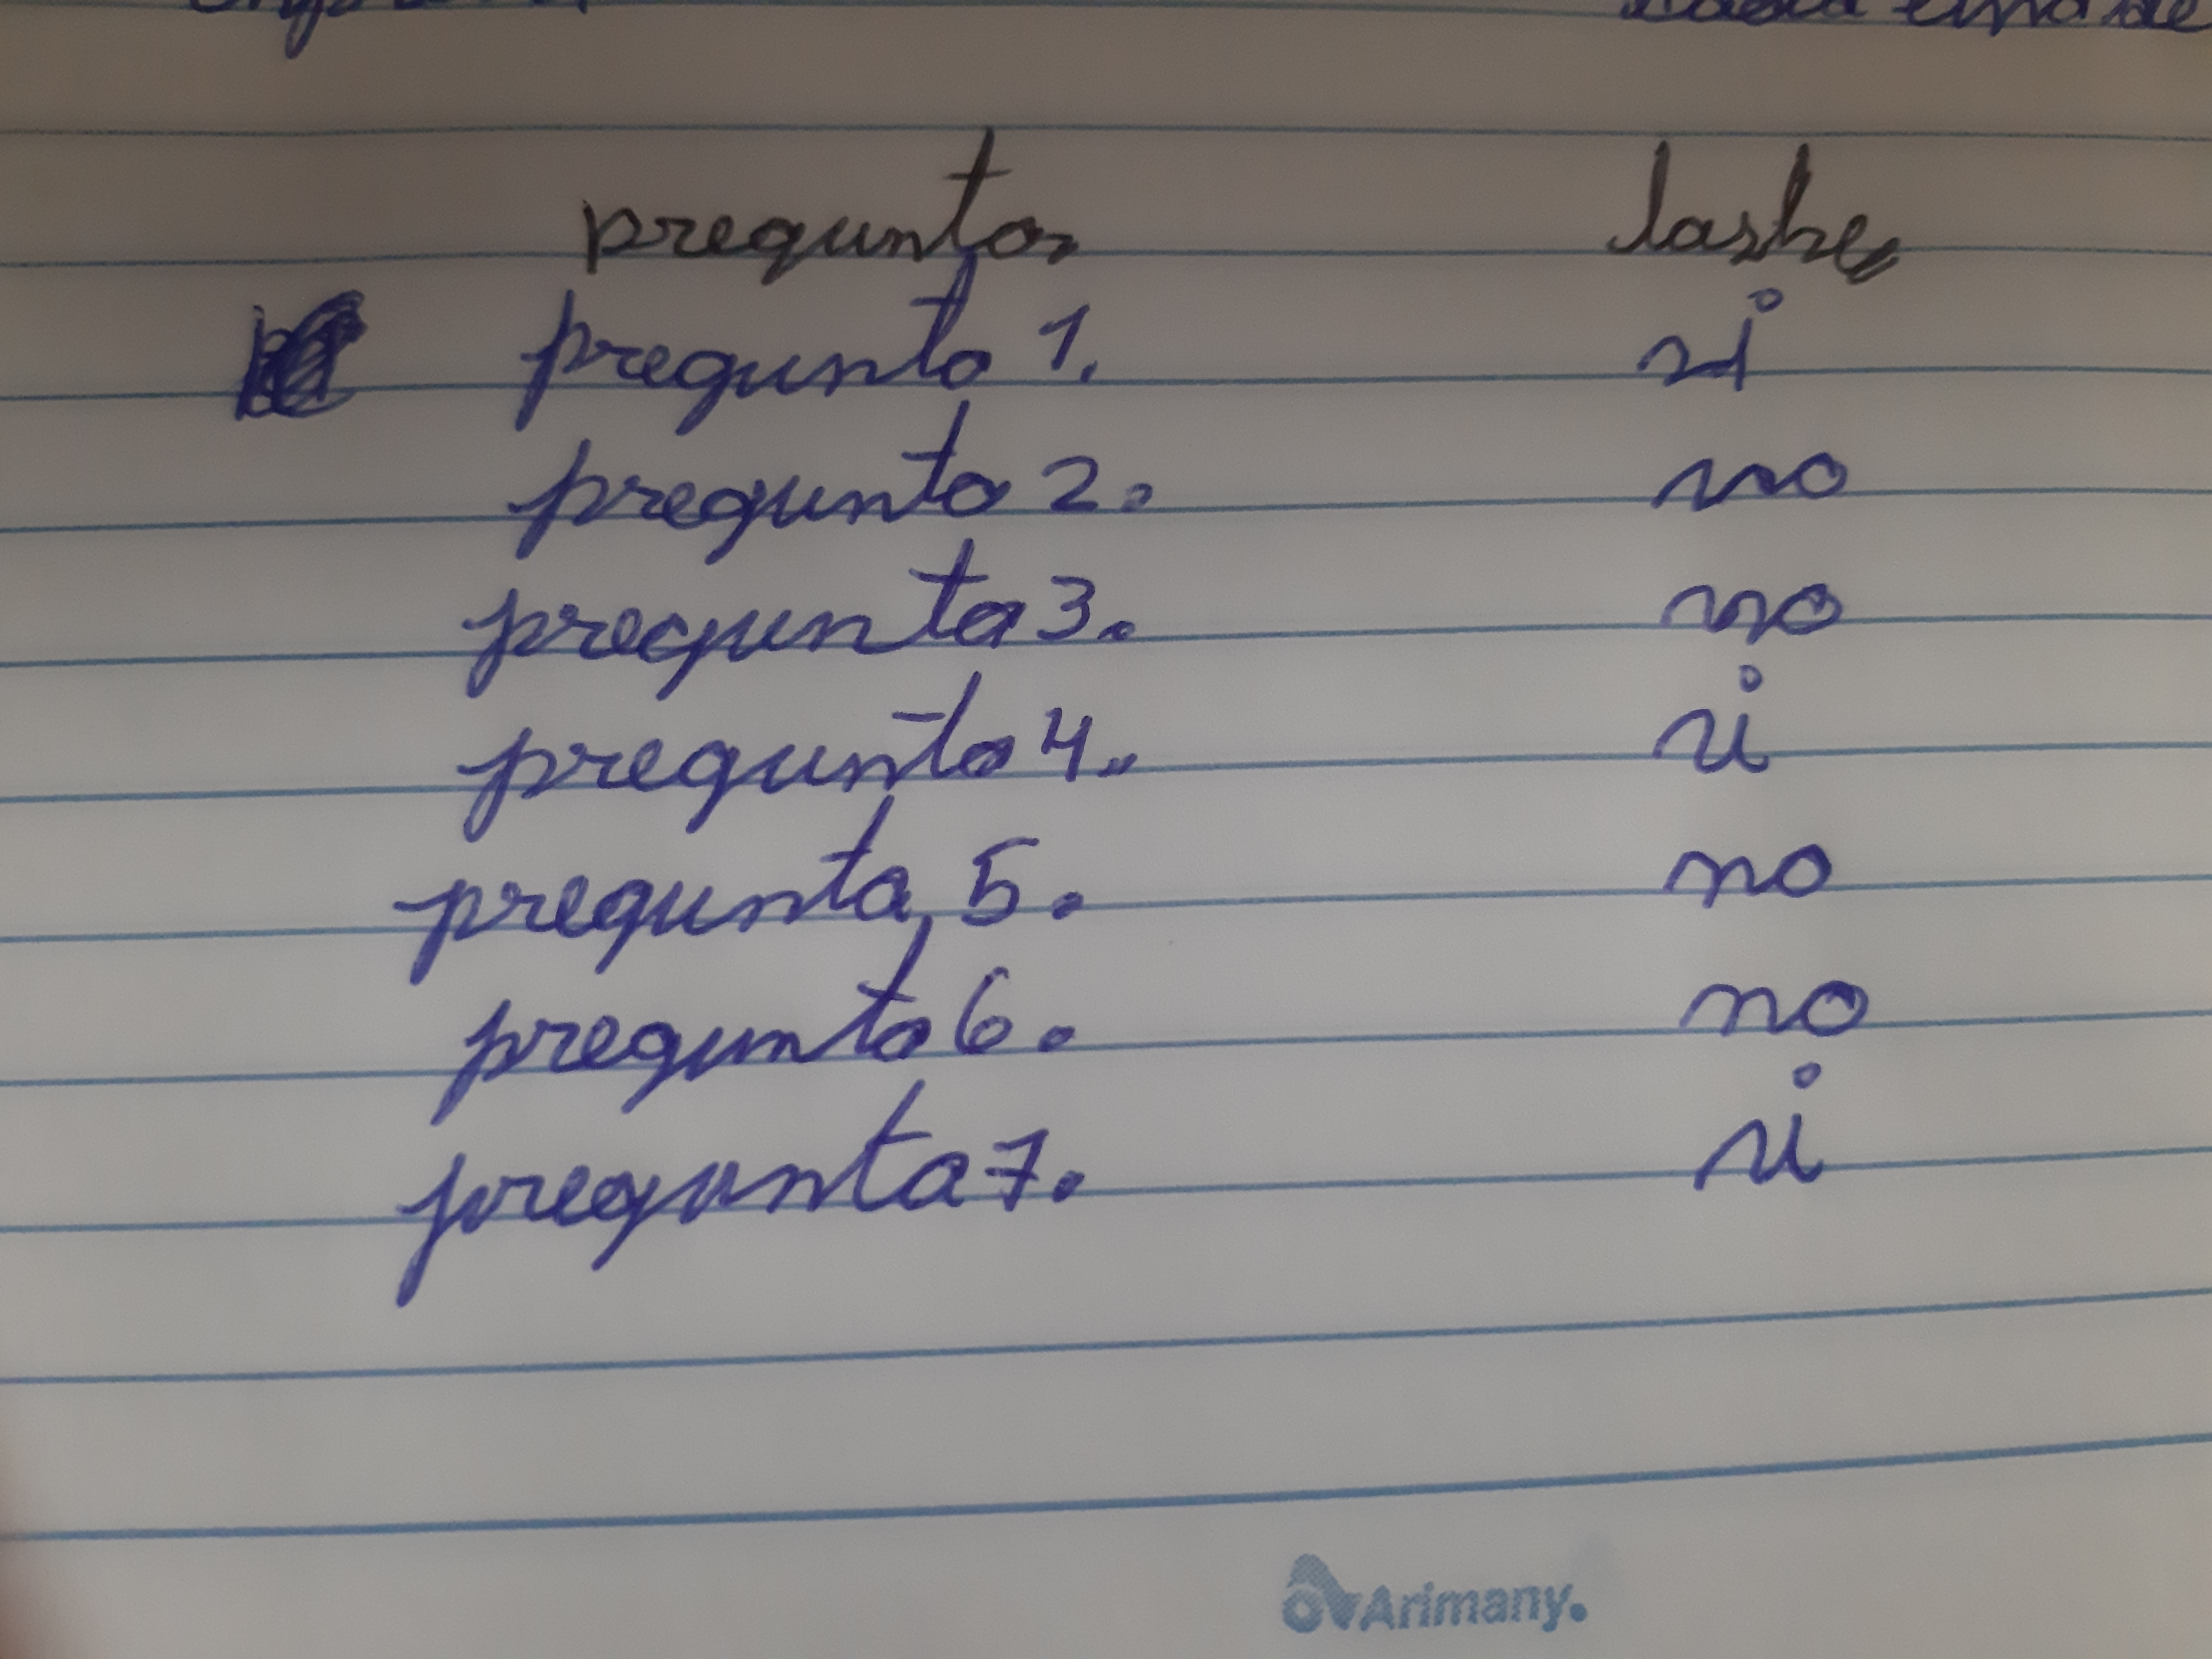 pregunta
pregunta 1. si
pregunta 2. no
pregunta 3. no
pregunta 4. si
pregunta 5. no
pregunta 6. no
pregunta 7. si
Arimany.